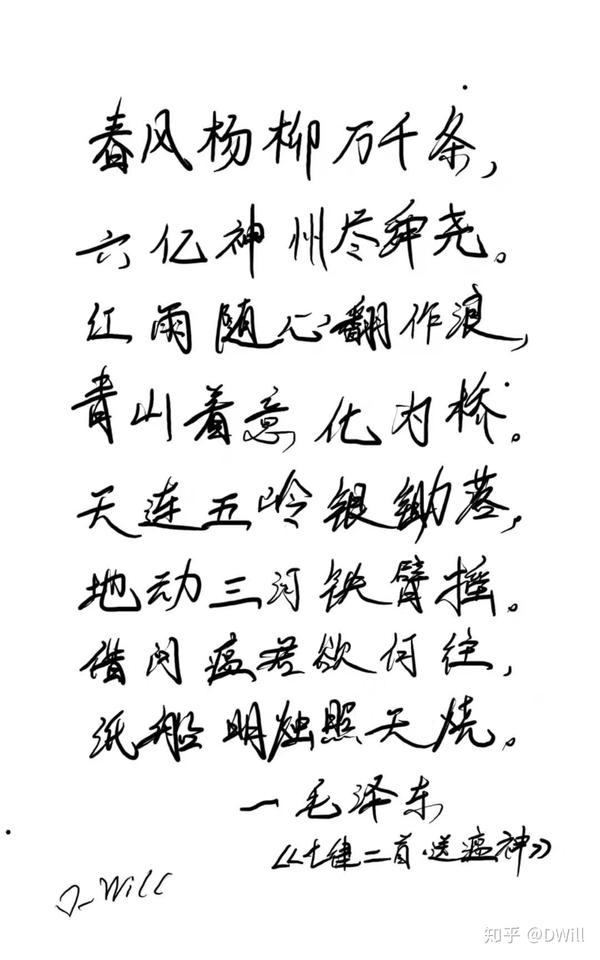 春风杨柳万千条，
六亿神州尽舜尧。
红雨随心翻作浪，
青山着意化为桥。
天连五岭银锄落，
地动三河铁臂摇。
借问瘟君欲何往，
纸船明烛照天烧。
一毛泽东
《七律二首·送瘟神》
D_Will
知乎 @DWill